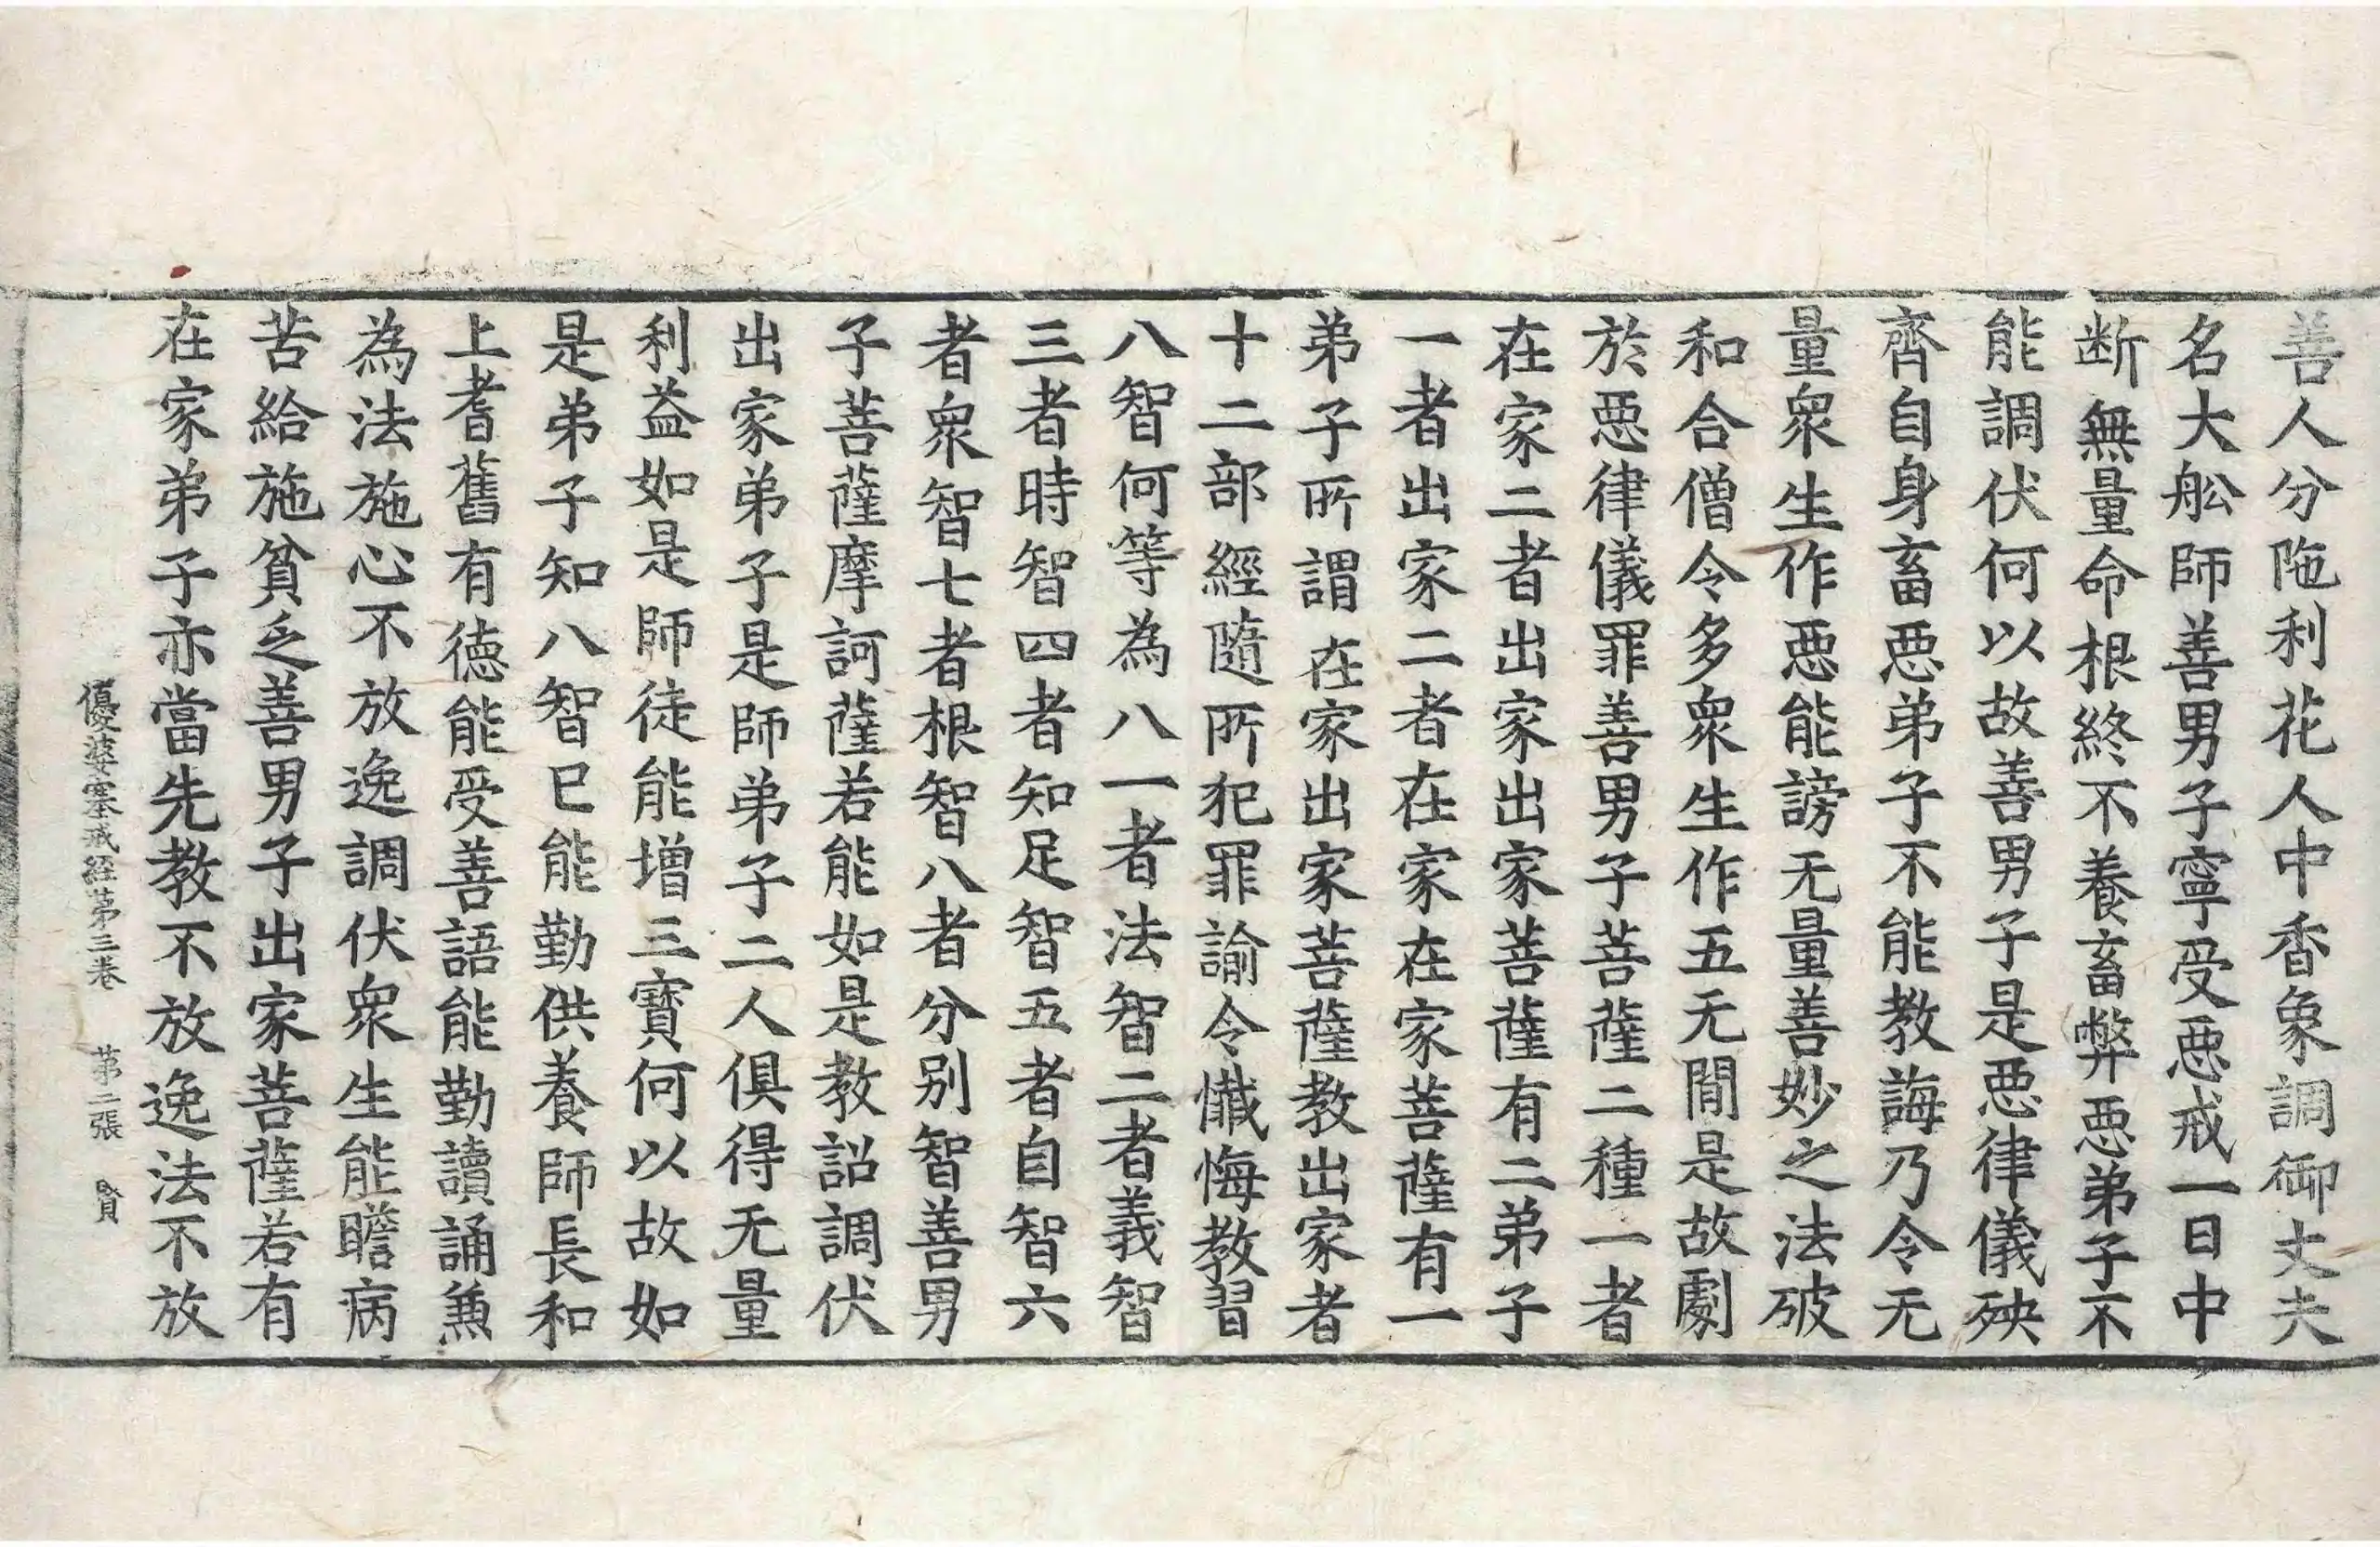 善人分陁利花人中香象調御丈夫
名大舩師善男子寧受惡戒一日中
断無量命根終不養畜弊惡弟子不
能調伏何以故善男子是惡律儀殃
齊自身畜惡弟子不能教誨乃令无
量衆生作惡能謗无量善妙之法破
和合僧令多衆生作五无間是故劇
於惡律儀罪善男子菩薩二種一者
在家二者出家出家菩薩有二弟子
一者出家二者在家在家菩薩有一
弟子所謂在家出家菩薩教出家者
十二部經隨所犯罪諭令懺悔教習
八智何等為八一者法智二者義智
三者時智四者知足智五者自智六
者衆智七者根智八者分別智善男
子菩薩摩訶薩若能如是教詔調伏
出家弟子是師弟子二人俱得无量
利益如是師徒能增三寶何以故如
是弟子知八智已能勤供養師長和
上耆舊有德能受善語能勤讀誦兼
為法施心不放逸調伏衆生能瞻病
苦給施貧乏善男子出家菩薩若有
在家弟子亦當先教不放逸法不放
優婆塞戒経苐三卷 苐二張 賢